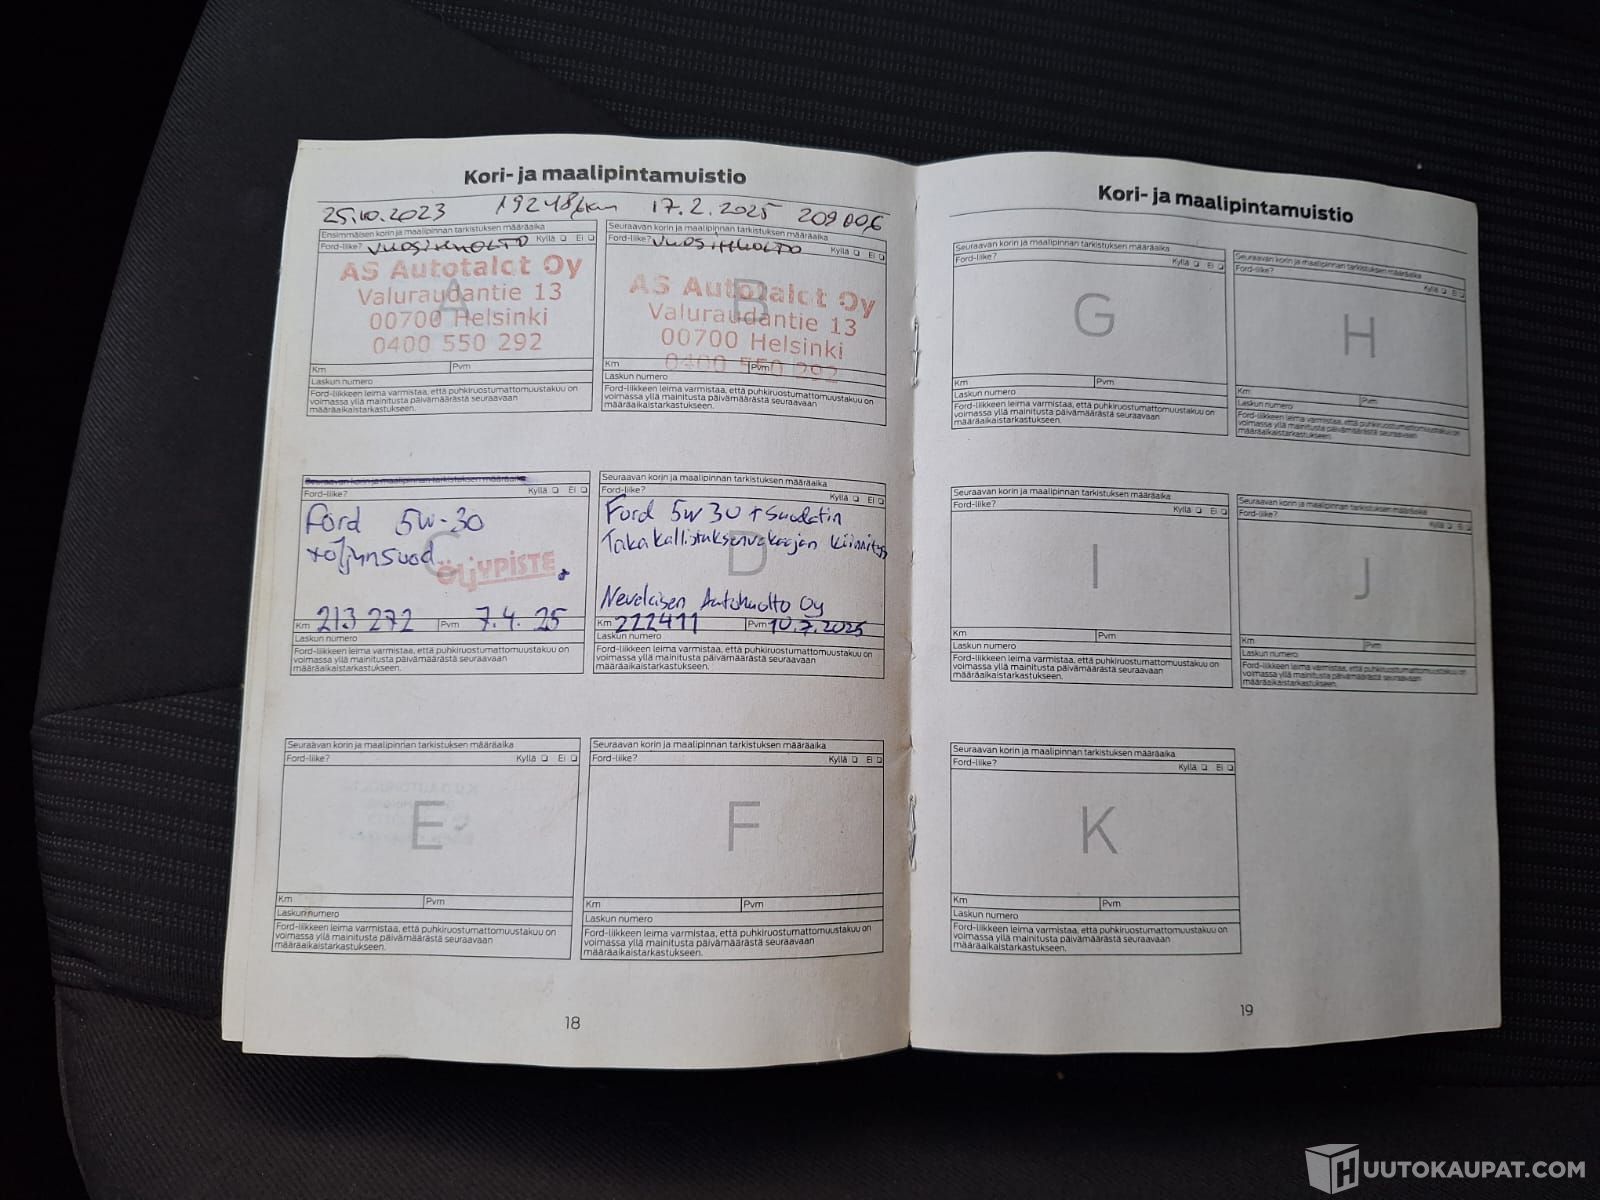 Kori- ja maalipintamuistio
25.10.2023 192481km 17.2.2025 209006
Ensimmäisen korin ja maalipinnan tarkistuksen määräaika
Ford-liike? VUOSIHUOLTO Kyllä Ei
AS Autotalot Oy
Valuraudantie 13
00700 Helsinki
0400 550 292
A
Km Pvm
Laskun numero
Ford-liikkeen leima varmistaa, että puhkiruostumattomuustakuu on
voimassa yllä mainitusta päivämäärästä seuraavaan
määräaikaistarkastukseen.
Seuraavan korin ja maalipinnan tarkistuksen määräaika
Ford-liike? VUOSIHUOLTO Kyllä Ei
AS Autotalot Oy
Valuraudantie 13
00700 Helsinki
0400 550 292
B
Km Pvm
Laskun numero
Ford-liikkeen leima varmistaa, että puhkiruostumattomuustakuu on
voimassa yllä mainitusta päivämäärästä seuraavaan
määräaikaistarkastukseen.
Seuraavan korin ja maalipinnan tarkistuksen määräaika
Ford-liike? Kyllä Ei
Ford 5W-30
+öljynsuod.
C
ÖLJYPISTE
Km 213 272 Pvm 7.4. 25
Laskun numero
Ford-liikkeen leima varmistaa, että puhkiruostumattomuustakuu on
voimassa yllä mainitusta päivämäärästä seuraavaan
määräaikaistarkastukseen.
Seuraavan korin ja maalipinnan tarkistuksen määräaika
Ford-liike? Kyllä Ei
Ford 5W30 + Suodatin
Takakallistuksenvakaajan kiinnitys
D
Nevelaisen Autohuolto Oy
Km 222411 Pvm 10.7.2025
Laskun numero
Ford-liikkeen leima varmistaa, että puhkiruostumattomuustakuu on
voimassa yllä mainitusta päivämäärästä seuraavaan
määräaikaistarkastukseen.
Seuraavan korin ja maalipinnan tarkistuksen määräaika
Ford-liike? Kyllä Ei
E
Km Pvm
Laskun numero
Ford-liikkeen leima varmistaa, että puhkiruostumattomuustakuu on
voimassa yllä mainitusta päivämäärästä seuraavaan
määräaikaistarkastukseen.
Seuraavan korin ja maalipinnan tarkistuksen määräaika
Ford-liike? Kyllä Ei
F
Km Pvm
Laskun numero
Ford-liikkeen leima varmistaa, että puhkiruostumattomuustakuu on
voimassa yllä mainitusta päivämäärästä seuraavaan
määräaikaistarkastukseen.
18
Kori- ja maalipintamuistio
Seuraavan korin ja maalipinnan tarkistuksen määräaika
Ford-liike? Kyllä Ei
G
Km Pvm
Laskun numero
Ford-liikkeen leima varmistaa, että puhkiruostumattomuustakuu on
voimassa yllä mainitusta päivämäärästä seuraavaan
määräaikaistarkastukseen.
Seuraavan korin ja maalipinnan tarkistuksen määräaika
Ford-liike? Kyllä Ei
H
Km Pvm
Laskun numero
Ford-liikkeen leima varmistaa, että puhkiruostumattomuustakuu on
voimassa yllä mainitusta päivämäärästä seuraavaan
määräaikaistarkastukseen.
Seuraavan korin ja maalipinnan tarkistuksen määräaika
Ford-liike? Kyllä Ei
I
Km Pvm
Laskun numero
Ford-liikkeen leima varmistaa, että puhkiruostumattomuustakuu on
voimassa yllä mainitusta päivämäärästä seuraavaan
määräaikaistarkastukseen.
Seuraavan korin ja maalipinnan tarkistuksen määräaika
Ford-liike? Kyllä Ei
J
Km Pvm
Laskun numero
Ford-liikkeen leima varmistaa, että puhkiruostumattomuustakuu on
voimassa yllä mainitusta päivämäärästä seuraavaan
määräaikaistarkastukseen.
Seuraavan korin ja maalipinnan tarkistuksen määräaika
Ford-liike? Kyllä Ei
K
Km Pvm
Laskun numero
Ford-liikkeen leima varmistaa, että puhkiruostumattomuustakuu on
voimassa yllä mainitusta päivämäärästä seuraavaan
määräaikaistarkastukseen.
19
HUUTOKAUPAT.COM